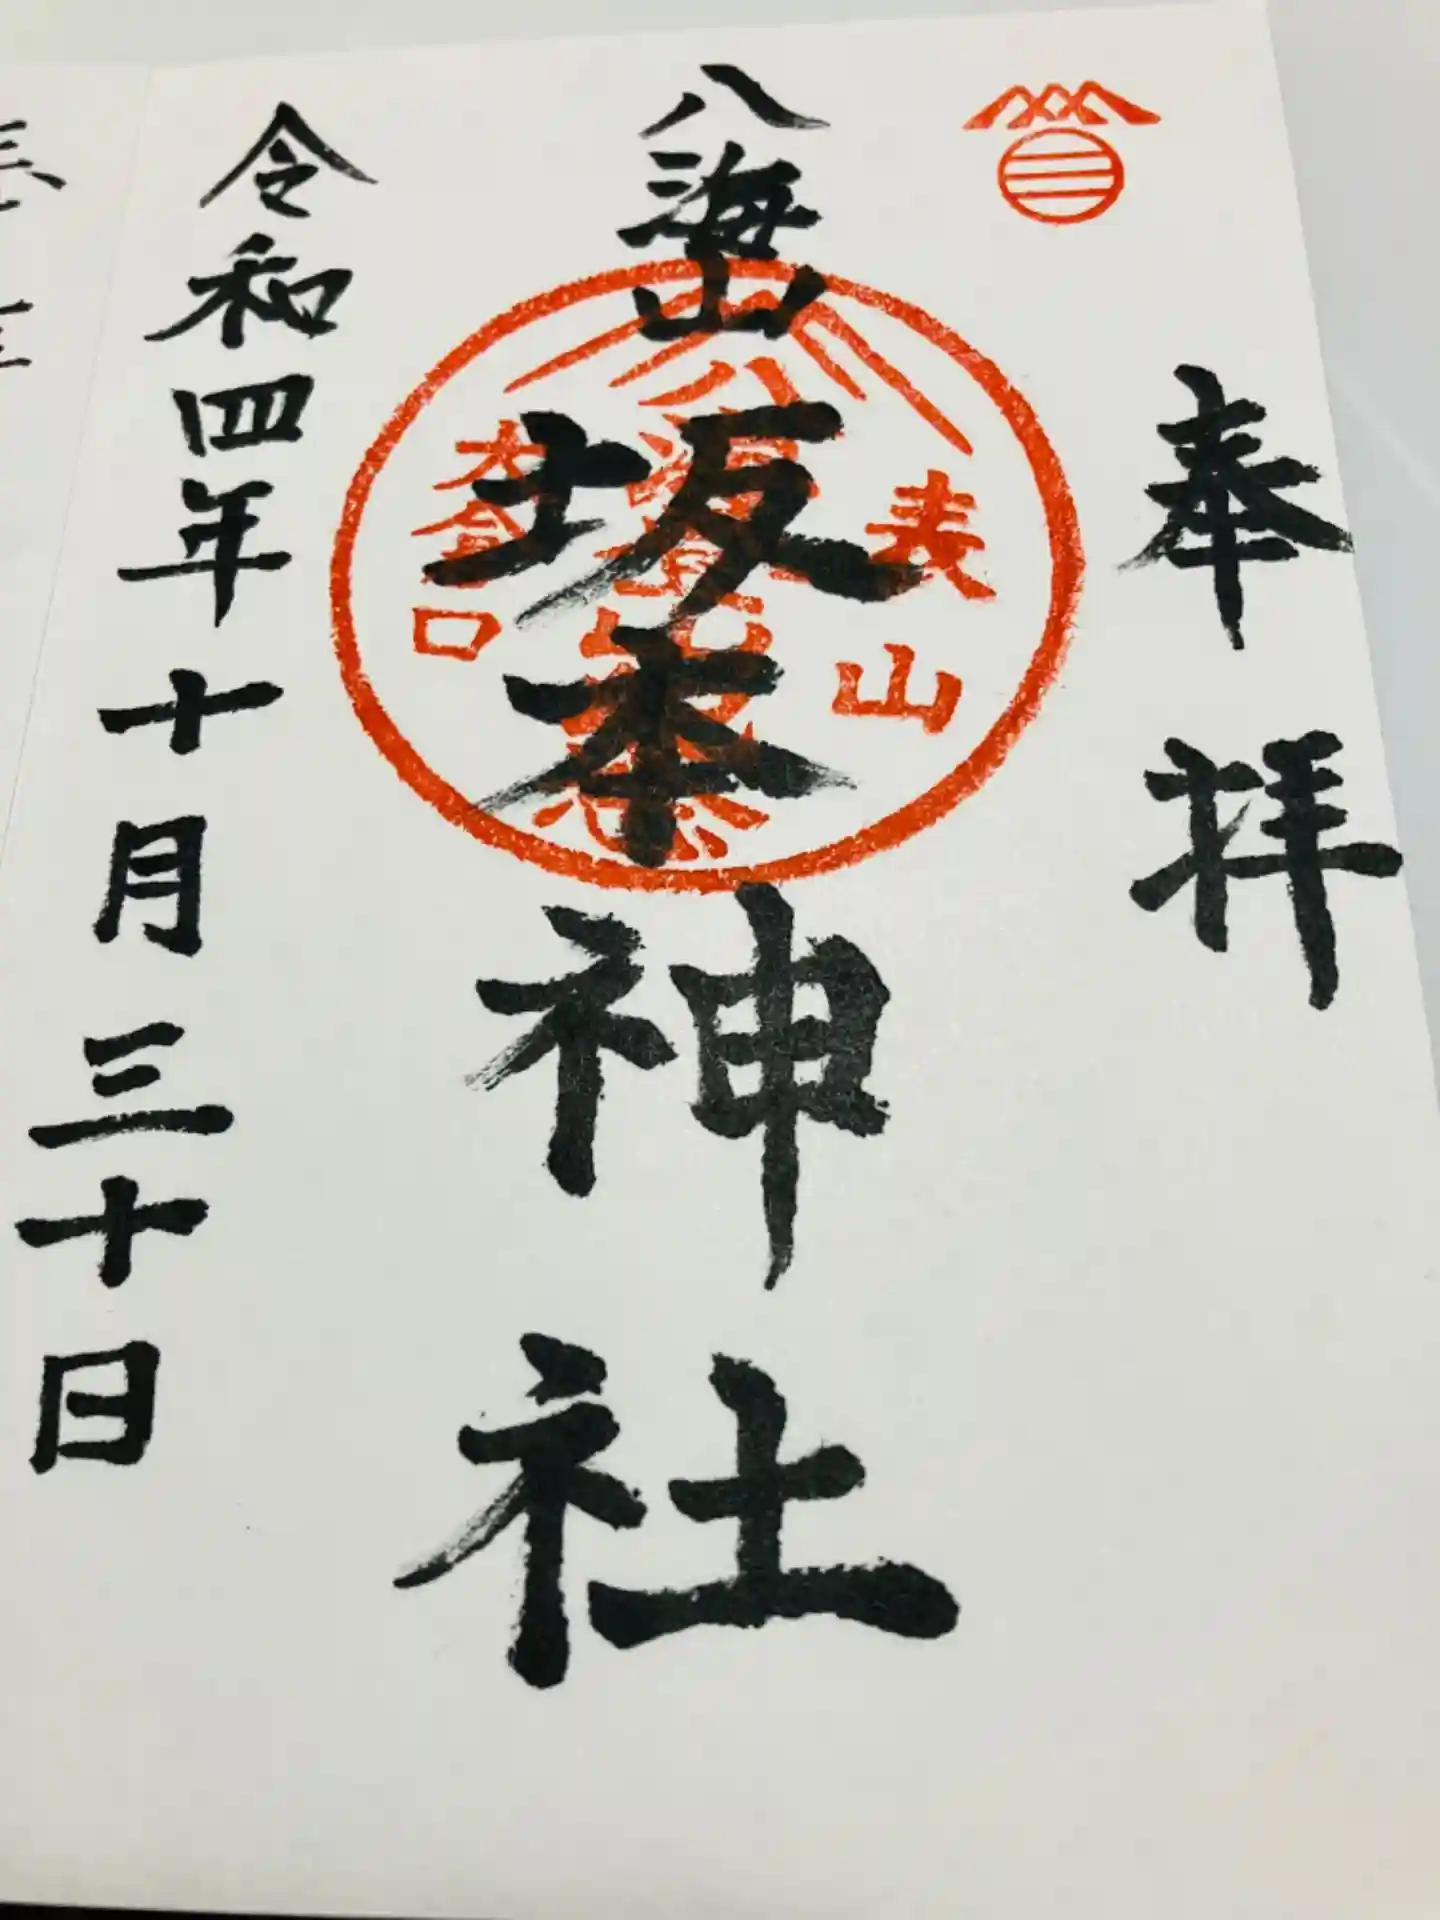 奉拝
八海山
坂本神社
表山
大倉口
令和四年十月三十日